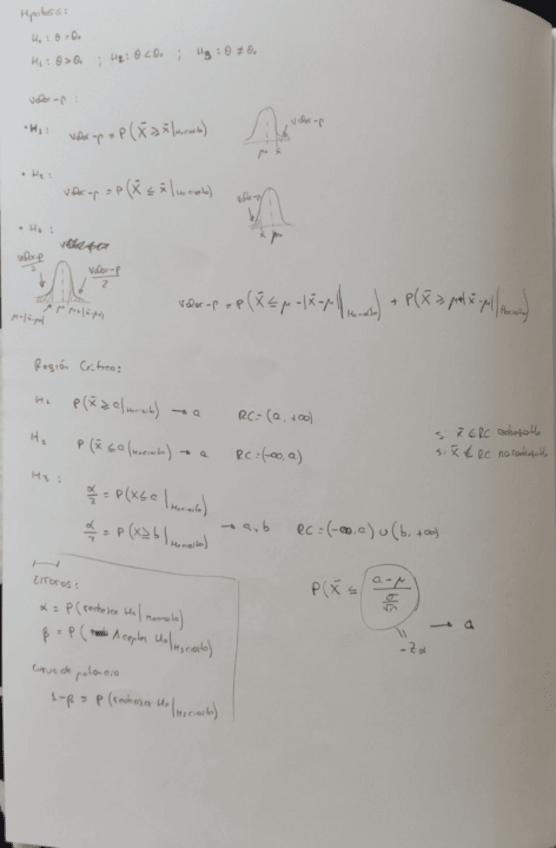 Hipótesis:
H₀: θ = θ₀
H₁: θ > θ₀ ; H₂: θ < θ₀ ; H₃: θ ≠ θ₀
valor-p:
• H₁: valor-p = P(X̄ ≥ x̄ | H₀ cierto)
valor-p
μ x̄
• H₂:
valor-p = P(X̄ ≤ x̄ | H₀ cierto)
valor-p
x̄ μ
• H₃:
valor-p/2
valor-p/2
μ-|x̄-μ| μ μ+|x̄-μ|
valor-p = P(X̄ ≤ μ-|x̄-μ| | H₀ cierto) + P(X̄ ≥ μ+|x̄-μ| | H₀ cierto)
Región Crítica:
H₁ P(X̄ ≥ a | H₀ cierto) → a RC = (a, +∞)
H₂ P(X̄ ≤ a | H₀ cierto) → a RC = (-∞, a)
si x̄ ∈ RC rechazo H₀
si x̄ ∉ RC no rechazo H₀
H₃:
α/2 = P(X ≤ a | H₀ cierto)
α/2 = P(X ≥ b | H₀ cierto) → a, b RC = (-∞, a) ∪ (b, +∞)
Errores:
α = P(rechazar H₀ | H₀ cierto)
β = P(Aceptar H₀ | H₁ cierto)
Curva de potencia
1-β = P(rechazar H₀ | H₁ cierto)
P(X̄ ≤ (a-μ)/(σ/√n)) → a
-Zα